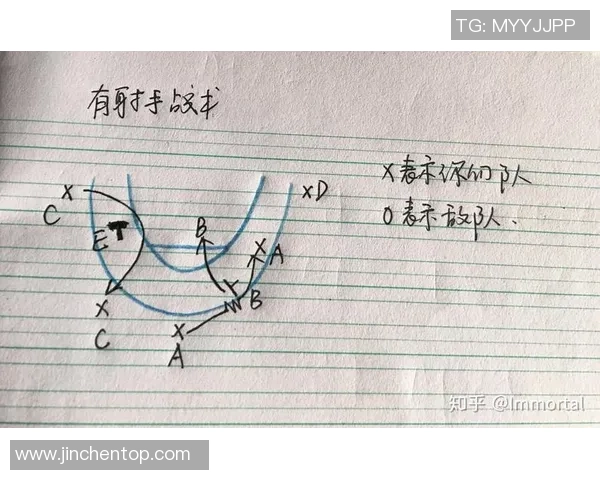 TG: MYYJJPP
有射手战术
X表示你们队
O表示敌队.
X
C
E
B
X A
X D
B
X
C
X
A
知乎 @Immortal
www.jinchentop.com